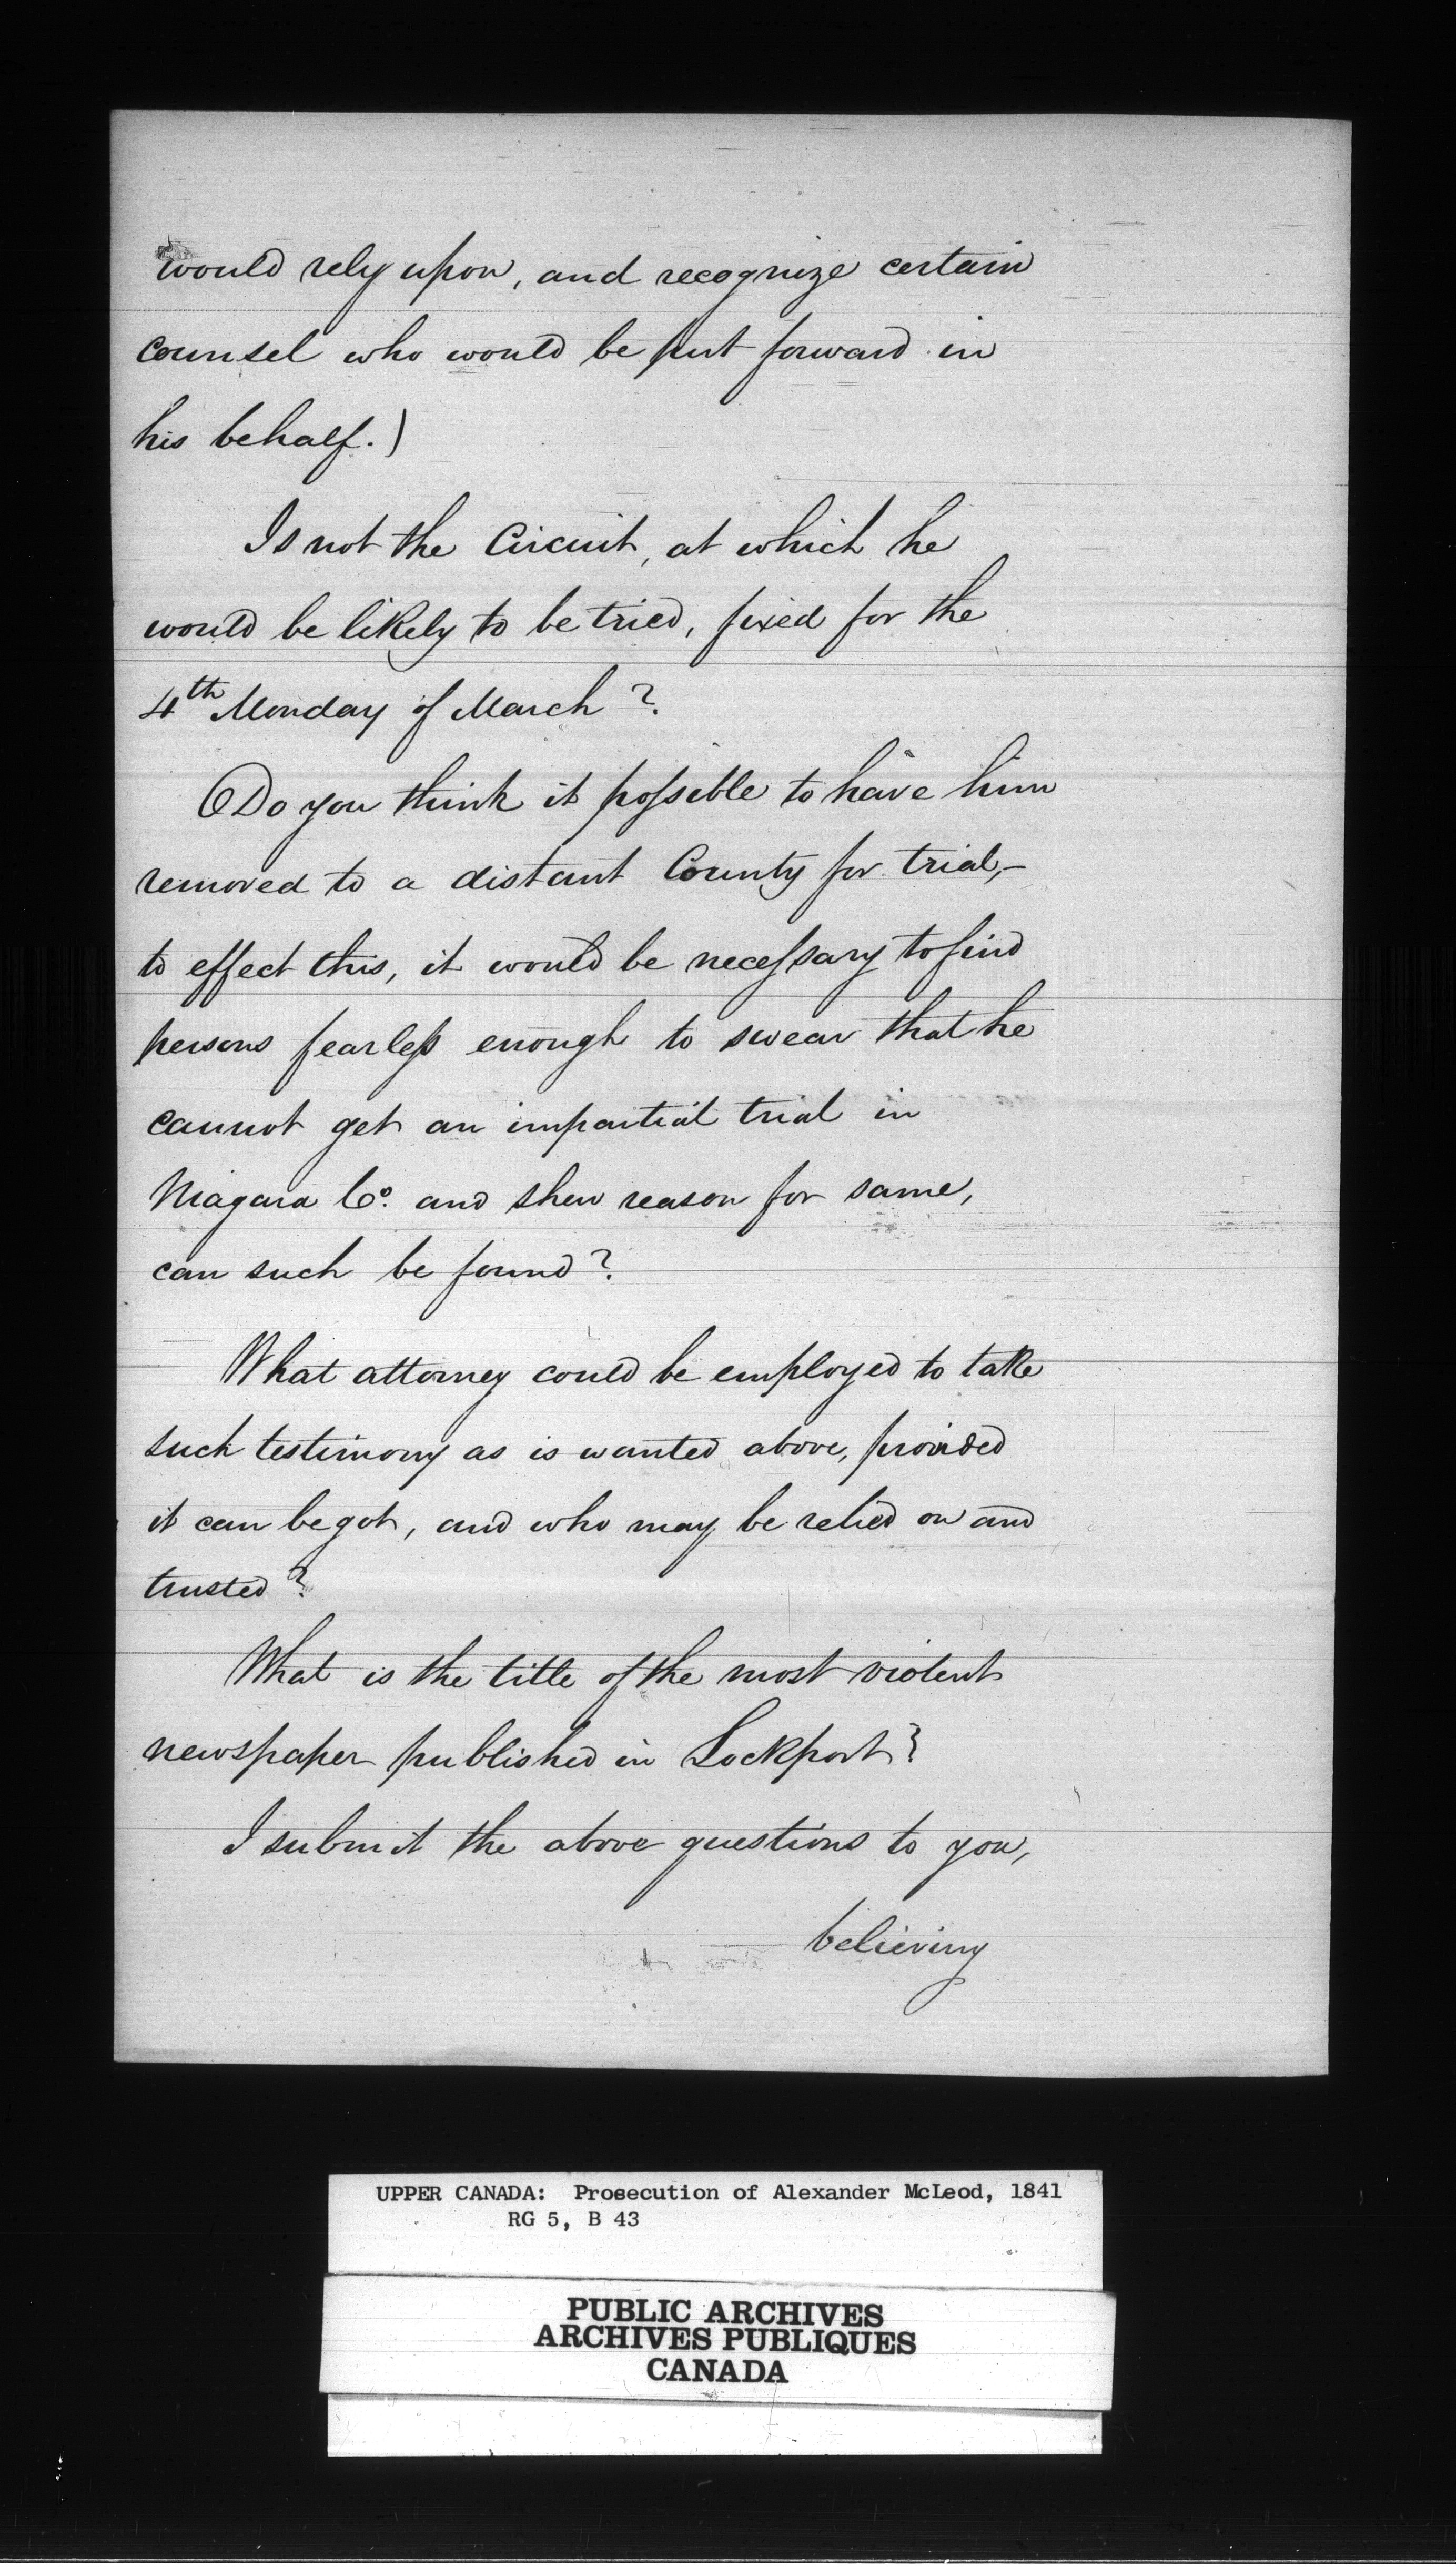 would rely upon, and recognize certain
counsel who would be put forward in
his behalf.)
Is not the Circuit, at which he
would be likely to be tried, fixed for the
4th Monday of March?
Do you think it possible to have him
removed to a distant County for trial,-
to effect this, it would be necessary to find
persons fearless enough to swear that he
cannot get an impartial trial in
Niagara Co. and shew reason for same,
can such be found?
What attorney could be employed to take
such testimony as is wanted above, provided
it can be got, and who may be relied on and
trusted?
What is the title of the most violent
newspaper published in Lockport?
I submit the above questions to you,
believing
UPPER CANADA: Prosecution of Alexander McLeod, 1841
RG 5, B 43
PUBLIC ARCHIVES
ARCHIVES PUBLIQUES
CANADA